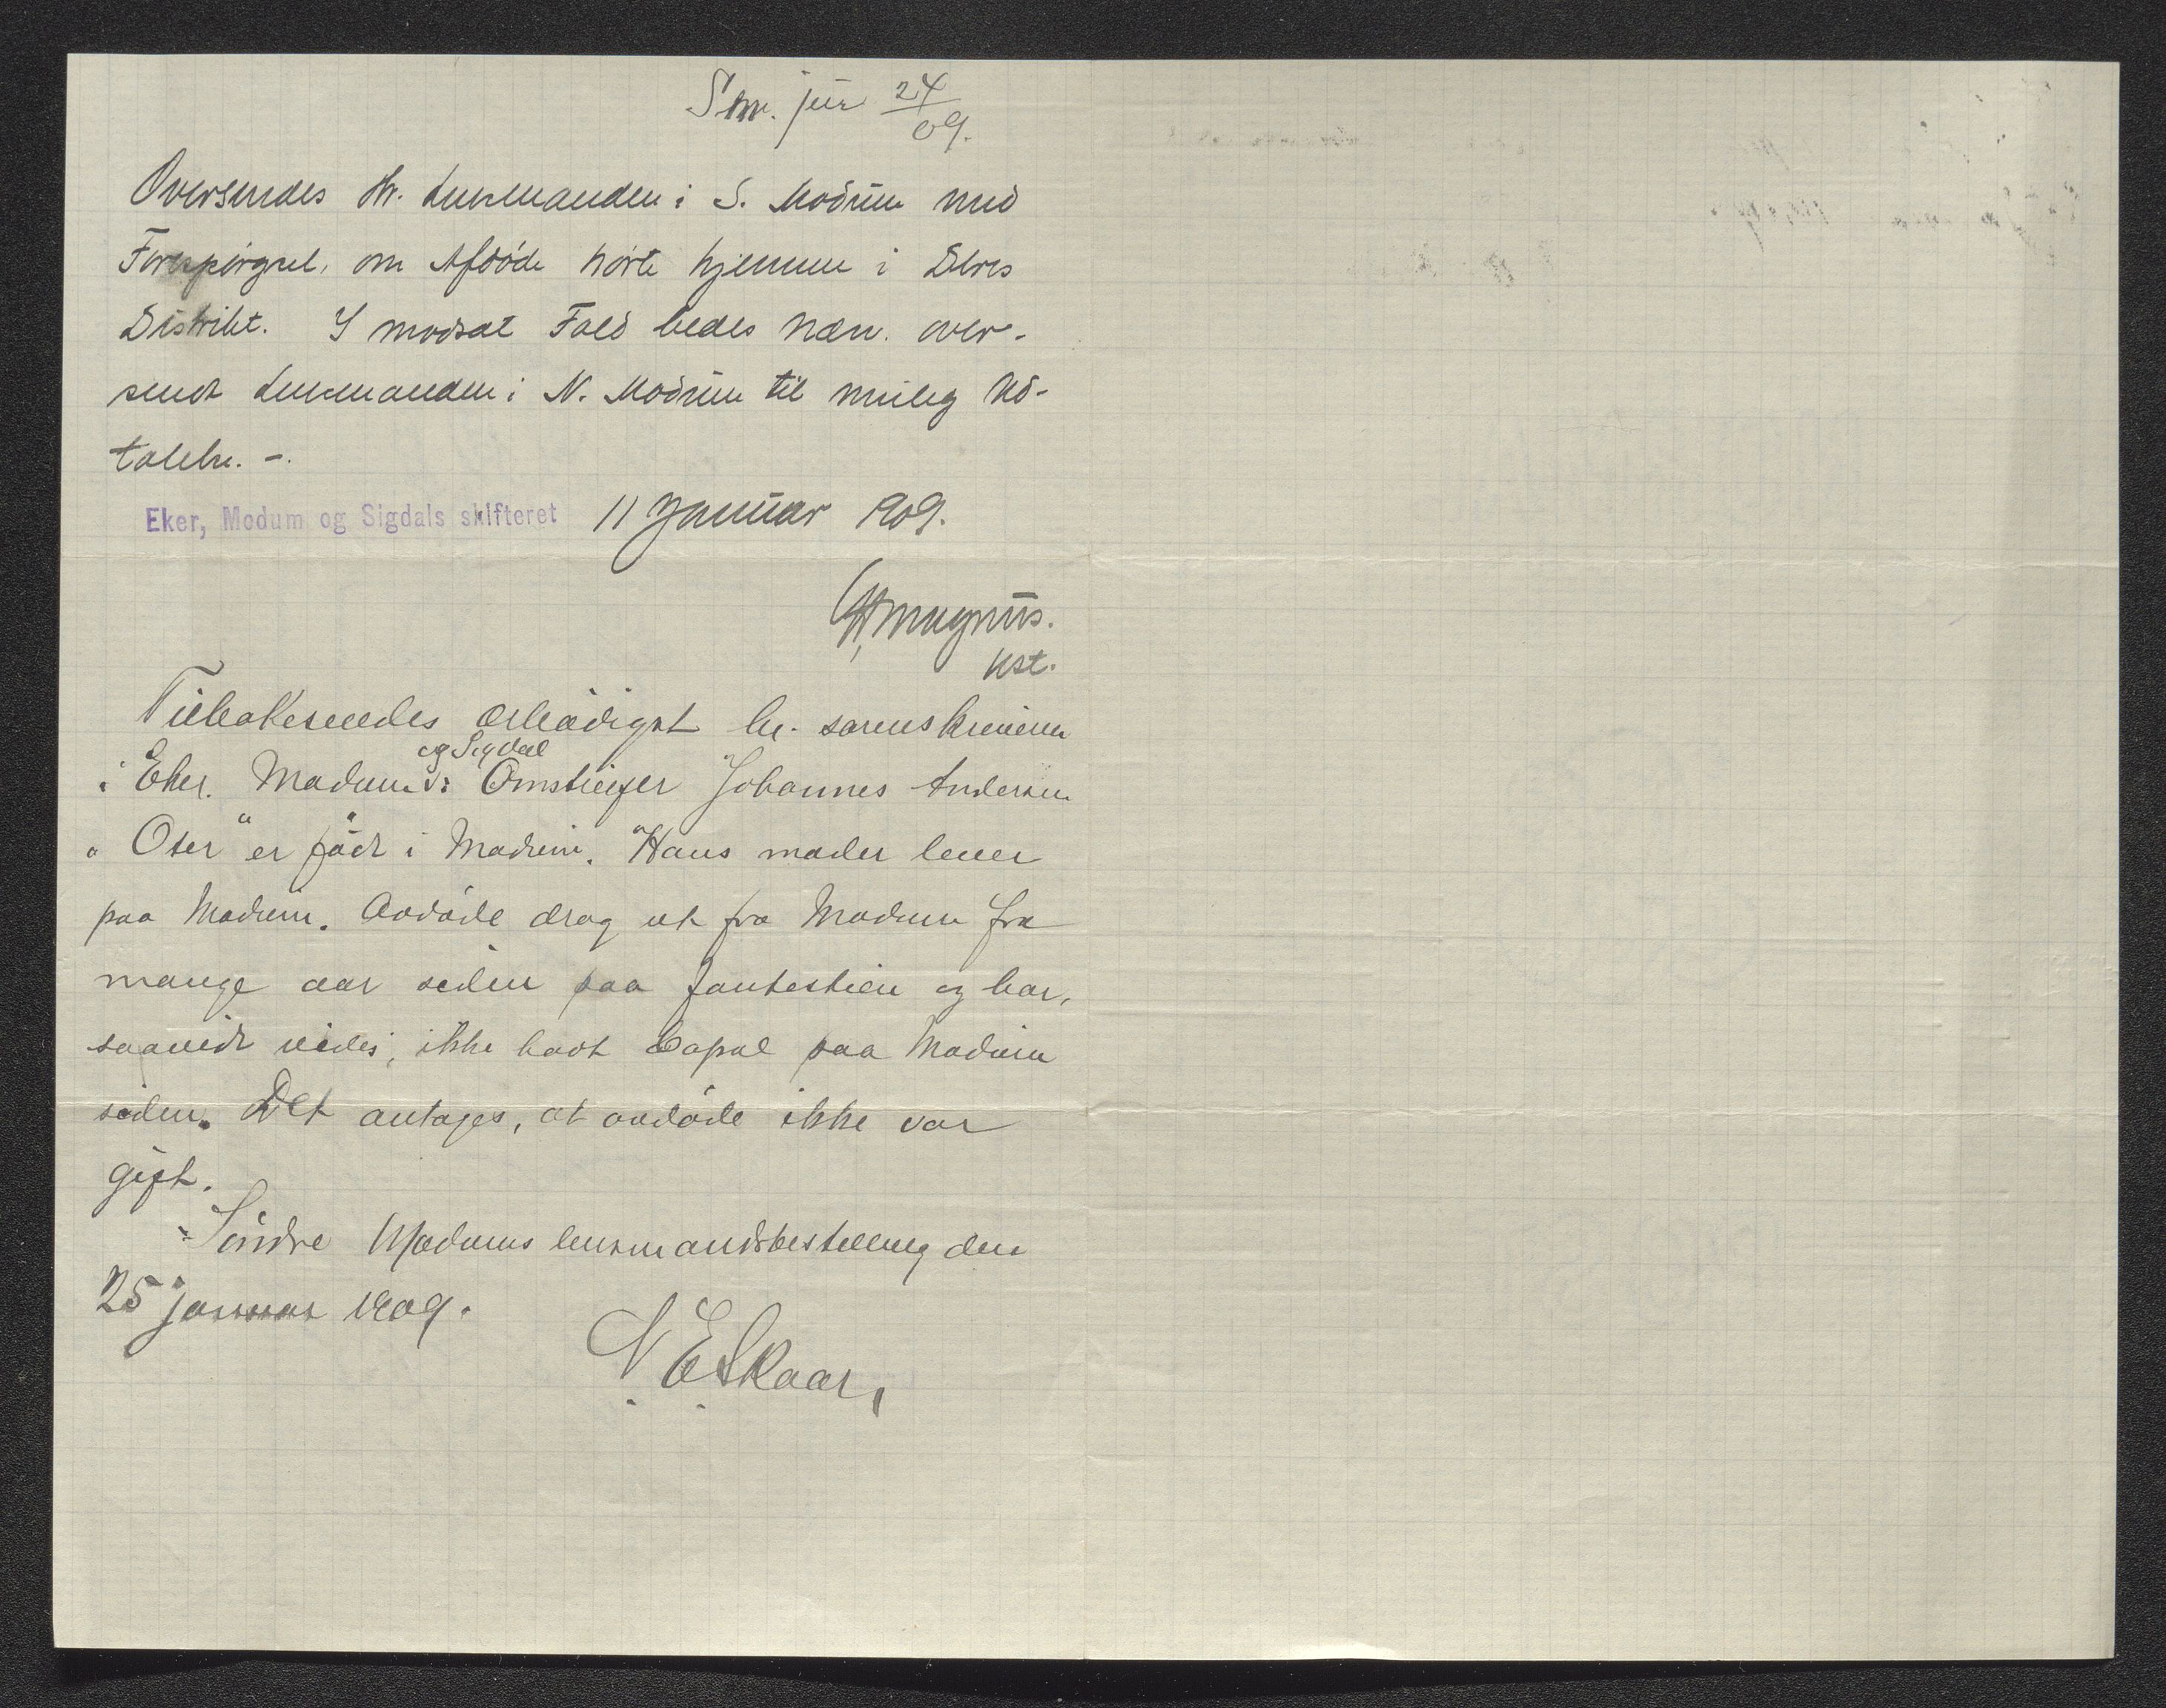 Sm. jur 24/09.
Oversendes Hr. Lensmanden i S. Modum med
Forespørgsel, om Afdøde hørte hjemme i Deres
Distrikt. I modsat Fald bedes næv. over-
sendt Lensmanden i N. Modum til mulig Ud-
talelse. -.
Eker, Modum og Sigdals skifteret 11 Januar 1909.
Magnus.
kst.
Tilbakesendes ærbødigst hr. sorenskriveren
og Sigdal
i Eker. Modum. Omstreifer Johannes Andersen
"Oter" er født i Modum. Hans moder lever
paa Modum. Avdøde drog ut fra Modum for
mange aar siden paa fantestien og har,
saavidt vides, ikke havt bopæl paa Modum
siden. Det antages, at avdøde ikke var
gift.
Søndre Modums lensmandsbestilling den
25 januar 1909.
N. E. Skaar,